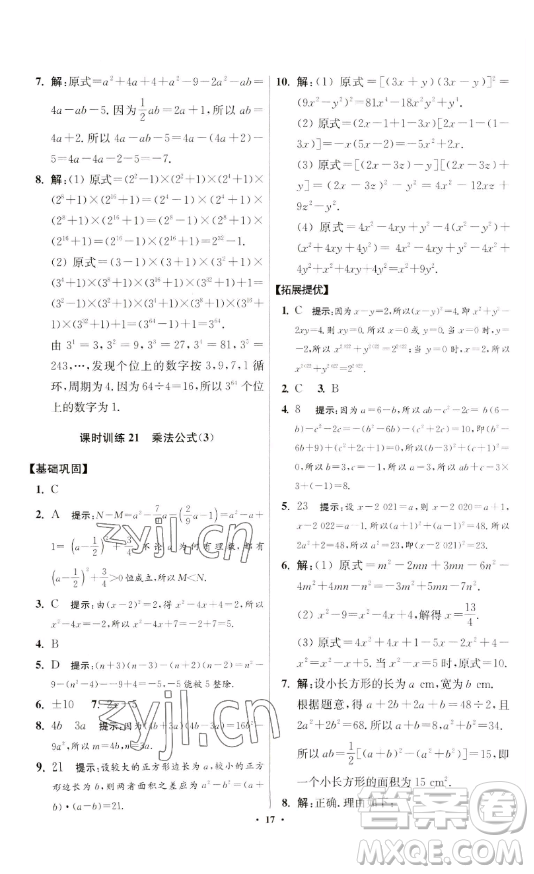 7. 解:原式=a²+4a+4+a²-9-2a²-ab=
4a-ab-5. 因为1/2ab=2a+1,所以ab=
4a+2. 所以4a-ab-5=4a-(4a+2)-
5=4a-4a-2-5=-7.
8. 解:(1) 原式=(2²-1)×(2²+1)×(2⁴+1)×
(2⁸+1)×(2¹⁶+1)=(2⁴-1)×(2⁴+1)×
(2⁸+1)×(2¹⁶+1)=(2⁸-1)×(2⁸+1)×
(2¹⁶+1)=(2¹⁶-1)×(2¹⁶+1)=2³²-1.
(2) 原式=(3-1)×(3+1)×(3²+1)×
(3⁴+1)×(3⁸+1)×(3¹⁶+1)×(3³²+1)+1=
(3²-1)×(3²+1)×(3⁴+1)×(3⁸+1)×
(3¹⁶+1)×(3³²+1)+1=3⁶⁴-1+1=3⁶⁴.
由3¹=3,3²=9,3³=27,3⁴=81,3⁵=
243,…,发现个位上的数字按3,9,7,1循
环,周期为4. 因为64÷4=16,所以3⁶⁴个位
上的数字为1.
课时训练21 乘法公式(3)
【基础巩固】
1. C
2. A 提示:N-M=a²-7/9a-(2/9a-1)=a²-a+
1=(a-1/2)²+3/4. 不论a为何有理数,都有
(a-1/2)²+3/4>0恒成立,所以M<N.
3. C 提示:由(x-2)²=2,得x²-4x+4=2,所以
x²-4x=-2. 所以x²-4x+7=-2+7=5.
4. B
5. D 提示:(n+3)(n-3)-(n+2)(n-2)=n²-
9-(n²-4)=n²-9-n²+4=-5,一定能被5整除.
6. ±10 7.
8. 4b 3a 提示:因为(4b+3a)(4b-3a)=16b²-
9a²,所以m=4b,n=3a.
9. 21 提示:设较大的正方形边长为a,较小的正方
形边长为b,则两者面积之差为a²-b²=(a+
b)·(a-b)=21.
10. 解:(1) 原式=[(3x+y)(3x-y)]²=
(9x²-y²)²=81x⁴-18x²y²+y⁴.
(2) 原式=(2x-1+1-3x)[2x-1-(1-
3x)]=-x(5x-2)=-5x²+2x.
(3) 原式=[(2x-3z)-y][(2x-3z)+
y]=(2x-3z)²-y²=4x²-12xz+
9z²-y².
(4) 原式=4x²-4xy+y²-4(x²-y²)+
(x²+4xy+4y²)=4x²-4xy+y²-4x²+
4y²+x²+4xy+4y²=x²+9y².
【拓展提优】
1. C 提示:因为x-y=2,所以(x-y)²=4,即x²+y²-
2xy=4,则xy=0. 所以x=0或y=0. 当x=0时,
x²⁰²²+y²⁰²²=2²⁰²²,当y=0时,x²⁰²²+y²⁰²²=2²⁰²².
所以x²⁰²²+y²⁰²²=2²⁰²².
2. C 3. B
4. 8 提示:因为a=6-b,所以ab-c²-2c=b(6-
b)-c²-2c=-b²+6b-c²-2c=10,所以b²-6b+
c²+2c+10=0. 所以(b-3)²+(c+1)²=0,解得
b=3,c=-1. 所以a=6-b=3. 所以b²-ac=3×
3+(-1)=8.
5. 23 提示:设x-2 021=a,则x-2 020=a+1,
x-2 022=a-1. 所以(a+1)²+(a-1)²=48. 所以
2a²+2=48,即a²=23. 所以(x-2021)²=23.
6. 解:(1) 原式=m²-2mn+3mn-6n²=
m²+mn-6n².
(2) x²-9=x²-4x+4,解得x=13/4.
(3) 原式=4x²+4x+1-5x-2x²+4+
x²-4x+4=3x²-5x+9.
7. 解:设小长方形的长为a cm,宽为b cm.
根据题意,得4a+4b+4a+4b=48÷2,且
2a²+2b²=68. 所以(a+b)²=8,a²+b²=34.
所以ab=1/2[(a+b)²-(a²+b²)]=15,即
一个小长方形的面积为15 cm².
8. 解:正确. 理由如下:
· 17 ·
zyjl.cn
zyjl.cn
答案圈
MXQE.COM